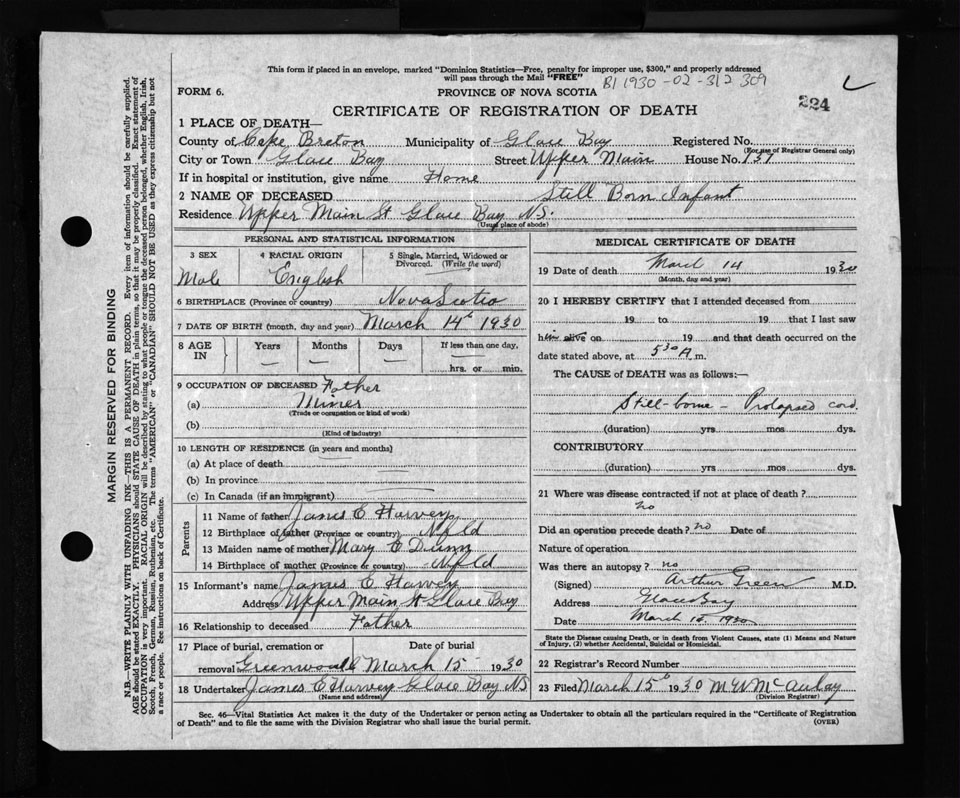 This form if placed in an envelope, marked "Dominion Statistics—Free, penalty for improper use, $300," and properly addressed
will pass through the Mail "FREE"
B1 1930 - 02 - 312 309
224
FORM 6.
PROVINCE OF NOVA SCOTIA
CERTIFICATE OF REGISTRATION OF DEATH
1 PLACE OF DEATH—
County of Cape Breton Municipality of Glace Bay Registered No.
(For use of Registrar General only)
City or Town Glace Bay Street Upper Main House No. 137
If in hospital or institution, give name Home
2 NAME OF DECEASED Still Born Infant
Residence Upper Main St Glace Bay NS.
(Usual place of abode)
PERSONAL AND STATISTICAL INFORMATION
3 SEX 4 RACIAL ORIGIN 5 Single, Married, Widowed or
Divorced. (Write the word)
Male English
6 BIRTHPLACE (Province or country) Nova Scotia
7 DATE OF BIRTH (month, day and year) March 14th 1930
8 AGE IN Years Months Days If less than one day,
— — — hrs. or min.
9 OCCUPATION OF DECEASED Father
(a) Miner
(Trade or occupation or kind of work)
(b)
(Kind of industry)
10 LENGTH OF RESIDENCE (in years and months)
(a) At place of death
(b) In province
(c) In Canada (if an immigrant)
Parents
11 Name of father James E Harvey
12 Birthplace of father (Province or country) Nfld
13 Maiden name of mother Mary E Dunn
14 Birthplace of mother (Province or country) Nfld
15 Informant's name James E. Harvey
Address Upper Main St Glace Bay
16 Relationship to deceased Father
17 Place of burial, cremation or Date of burial
removal Greenwood March 15 1930
18 Undertaker James E Harvey Glace Bay NS
(Name and address)
MEDICAL CERTIFICATE OF DEATH
19 Date of death March 14 1930
(Month, day and year)
20 I HEREBY CERTIFY that I attended deceased from
19 to 19 that I last saw
him alive on 19 and that death occurred on the
date stated above, at 5 30 A. m.
The CAUSE of DEATH was as follows:—
Still-borne - Prolapsed cord.
(duration) yrs mos dys.
CONTRIBUTORY
(duration) yrs mos dys.
21 Where was disease contracted if not at place of death?
no
Did an operation precede death? no Date of
Nature of operation
Was there an autopsy? no
(Signed) Arthur Green M.D.
Address Glace Bay
Date March 1930
State the Disease causing Death, or in death from Violent Causes, state (1) Means and Nature
of Injury, (2) whether Accidental, Suicidal or Homicidal.
22 Registrar's Record Number
23 Filed March 15th 1930 McAulay
(Division Registrar)
Sec. 46—Vital Statistics Act makes it the duty of the Undertaker or person acting as Undertaker to obtain all the particulars required in the "Certificate of Registration
of Death" and to file the same with the Division Registrar who shall issue the burial permit.
(OVER)
MARGIN RESERVED FOR BINDING
N.B.—WRITE PLAINLY WITH UNFADING INK—THIS IS A PERMANENT RECORD. Every item of information should be carefully supplied.
AGE should be stated EXACTLY. PHYSICIANS should STATE CAUSE OF DEATH in plain terms, so that it may be properly classified. Exact statement of
OCCUPATION is very important. RACIAL ORIGIN will be described by stating to what people or tongue the deceased person belonged, whether English, Irish,
Scotch, French, German, Russian, Ruthenian, etc. The terms "AMERICAN" or "CANADIAN" SHOULD NOT BE USED as they express citizenship but not
a race or people. See instructions on back of Certificate.